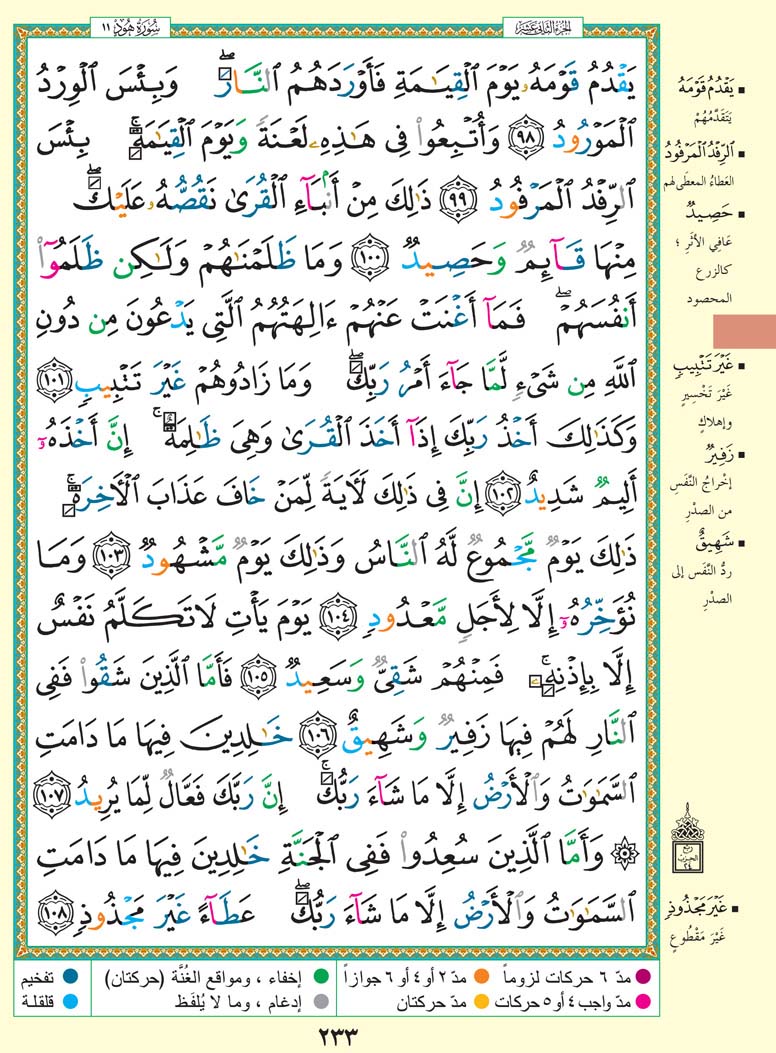 سُورَةُ هُودٍ ١١
الجزء الثاني عشر
يَقْدُمُ قَوْمَهُۥ يَوْمَ ٱلْقِيَٰمَةِ فَأَوْرَدَهُمُ ٱلنَّارَۖ وَبِئْسَ ٱلْوِرْدُ
ٱلْمَوْرُودُ ﴿٩٨﴾ وَأُتْبِعُوا۟ فِى هَٰذِهِۦ لَعْنَةً وَيَوْمَ ٱلْقِيَٰمَةِۚ بِئْسَ
ٱلرِّفْدُ ٱلْمَرْفُودُ ﴿٩٩﴾ ذَٰلِكَ مِنْ أَنۢبَآءِ ٱلْقُرَىٰ نَقُصُّهُۥ عَلَيْكَۖ
مِنْهَا قَآئِمٌ وَحَصِيدٌ ﴿١٠٠﴾ وَمَا ظَلَمْنَٰهُمْ وَلَٰكِن ظَلَمُوٓا۟
أَنفُسَهُمْۖ فَمَآ أَغْنَتْ عَنْهُمْ ءَالِهَتُهُمُ ٱلَّتِى يَدْعُونَ مِن دُونِ
ٱللَّهِ مِن شَىْءٍ لَّمَّا جَآءَ أَمْرُ رَبِّكَۖ وَمَا زَادُوهُمْ غَيْرَ تَتْبِيبٍ ﴿١٠١﴾
وَكَذَٰلِكَ أَخْذُ رَبِّكَ إِذَآ أَخَذَ ٱلْقُرَىٰ وَهِىَ ظَٰلِمَةٌۚ إِنَّ أَخْذَهُۥٓ
أَلِيمٌ شَدِيدٌ ﴿١٠٢﴾ إِنَّ فِى ذَٰلِكَ لَءَايَةً لِّمَنْ خَافَ عَذَابَ ٱلْءَاخِرَةِۚ
ذَٰلِكَ يَوْمٌ مَّجْمُوعٌ لَّهُ ٱلنَّاسُ وَذَٰلِكَ يَوْمٌ مَّشْهُودٌ ﴿١٠٣﴾ وَمَا
نُؤَخِّرُهُۥٓ إِلَّا لِأَجَلٍ مَّعْدُودٍ ﴿١٠٤﴾ يَوْمَ يَأْتِ لَا تَكَلَّمُ نَفْسٌ
إِلَّا بِإِذْنِهِۦۚ فَمِنْهُمْ شَقِىٌّ وَسَعِيدٌ ﴿١٠٥﴾ فَأَمَّا ٱلَّذِينَ شَقُوا۟ فَفِى
ٱلنَّارِ لَهُمْ فِيهَا زَفِيرٌ وَشَهِيقٌ ﴿١٠٦﴾ خَٰلِدِينَ فِيهَا مَا دَامَتِ
ٱلسَّمَٰوَٰتُ وَٱلْأَرْضُ إِلَّا مَا شَآءَ رَبُّكَۚ إِنَّ رَبَّكَ فَعَّالٌ لِّمَا يُرِيدُ ﴿١٠٧﴾
۞ وَأَمَّا ٱلَّذِينَ سُعِدُوا۟ فَفِى ٱلْجَنَّةِ خَٰلِدِينَ فِيهَا مَا دَامَتِ
ٱلسَّمَٰوَٰتُ وَٱلْأَرْضُ إِلَّا مَا شَآءَ رَبُّكَۖ عَطَآءً غَيْرَ مَجْذُوذٍ ﴿١٠٨﴾
▪ يَقْدُمُ قَوْمَهُ
يَتَقَدَّمُهُمْ
▪ ٱلرِّفْدُ ٱلْمَرْفُودُ
العَطاءُ المعطَى لهم
▪ حَصِيدٌ
عَافِي الأثَرِ ؛
كالزرع
المحصود
▪ غَيْرَ تَتْبِيبٍ
غَيْرَ تَخْسِيرٍ
وإهلاكٍ
▪ زَفِيرٌ
إخْراجُ النَّفَسِ
من الصدْرِ
▪ شَهِيقٌ
ردُّ النَّفَس إلى
الصدْرِ
ربع
الحزب
٢٤
▪ غَيْرَ مَجْذُوذٍ
غَيْرَ مَقْطُوعٍ
مدّ ٦ حركات لزوماً
مدّ ٢ أو ٤ أو ٦ جوازاً
إخفاء ، ومواقع الغُنَّة (حركتان)
تفخيم
مدّ واجب ٤ أو ٥ حركات
مدّ حركتان
إدغام ، وما لا يُلفَظ
قلقلة
٢٣٣